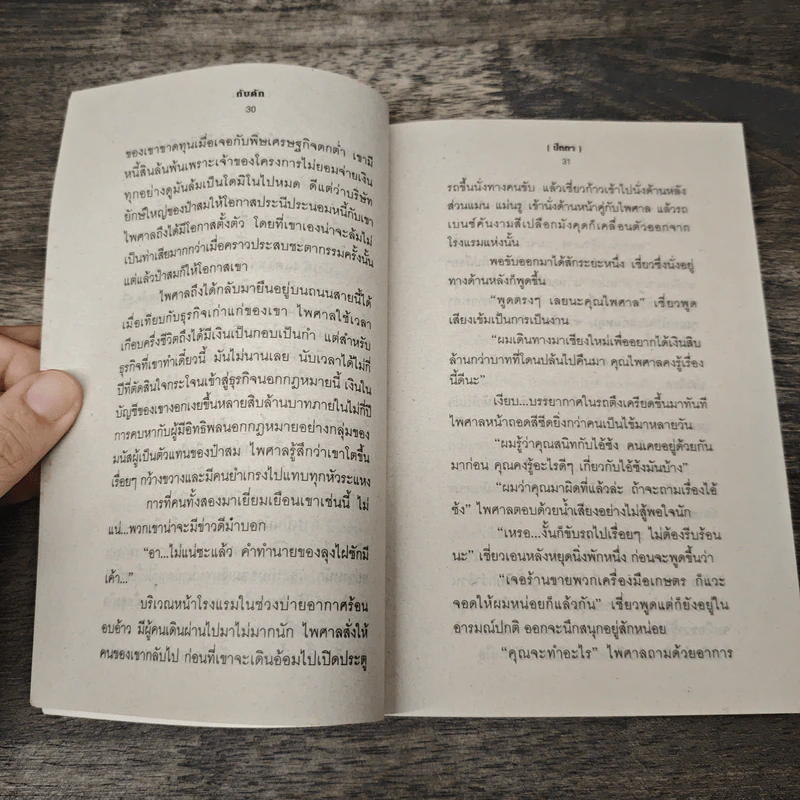 กับดัก
30
ของเขาขาดทุนเมื่อเจอกับพิษเศรษฐกิจตกต่ำ เขามี
หนี้สินล้นพ้นเพราะเจ้าของโครงการไม่ยอมจ่ายเงิน
ทุกอย่างดูมันล้มเป็นโดมิโนไปหมด ดีแต่ว่าบริษัท
ยักษ์ใหญ่ของป๋าสมให้โอกาสประนีประนอมหนี้กับเขา
ไพศาลถึงได้มีโอกาสตั้งตัว โดยที่เขาเองน่าจะล้มไม่
เป็นท่าเสียมากกว่าเมื่อคราวประสบชะตากรรมครั้งนั้น
แต่แล้วป๋าสมก็ให้โอกาสเขา
ไพศาลถึงได้กลับมายืนอยู่บนถนนสายนี้ได้
เมื่อเทียบกับธุรกิจเก่าแก่ของเขา ไพศาลใช้เวลา
เกือบครึ่งชีวิตถึงได้มีเงินเป็นกอบเป็นกำ แต่สำหรับ
ธุรกิจที่เขาทำเดี๋ยวนี้ มันไม่นานเลย นับเวลาได้ไม่กี่
ปีที่ตัดสินใจกระโจนเข้าสู่ธุรกิจนอกกฎหมายนี้ เงินใน
บัญชีของเขางอกเงยขึ้นหลายสิบล้านบาทภายในไม่กี่ปี
การคบหากับผู้มีอิทธิพลนอกกฎหมายอย่างกลุ่มของ
มนัสผู้เป็นตัวแทนของป๋าสม ไพศาลรู้สึกว่าเขาโตขึ้น
เรื่อยๆ กว้างขวางและมีคนยำเกรงไปแทบทุกหัวระแหง
การที่คนทั้งสองมาเยี่ยมเยือนเขาเช่นนี้ ไม่
แน่...พวกเขาน่าจะมีข่าวดีมาบอก
“อา...ไม่แน่ซะแล้ว คำทำนายของลุงไฝชักมี
เค้า...”
บริเวณหน้าโรงแรมในช่วงบ่ายอากาศร้อน
อบอ้าว มีผู้คนเดินผ่านไปมาไม่มากนัก ไพศาลสั่งให้
คนของเขากลับไป ก่อนที่เขาจะเดินอ้อมไปเปิดประตู
( ปักกา )
31
รถขึ้นนั่งทางคนขับ แล้วเชี่ยวก้าวเข้าไปนั่งด้านหลัง
ส่วนแมน แม่นรู เข้านั่งด้านหน้าคู่กับไพศาล แล้วรถ
เบนซ์คันงามสีเปลือกมังคุดก็เคลื่อนตัวออกจาก
โรงแรมแห่งนั้น
พอขับออกมาได้สักระยะหนึ่ง เชี่ยวซึ่งนั่งอยู่
ทางด้านหลังก็พูดขึ้น
“พูดตรงๆ เลยนะคุณไพศาล” เชี่ยวพูด
เสียงเข้มเป็นการเป็นงาน
“ผมเดินทางมาเชียงใหม่เพื่ออยากได้เงินสิบ
ล้านกว่าบาทที่โดนปล้นไปคืนมา คุณไพศาลคงรู้เรื่อง
นี้ดีนะ”
เงียบ...บรรยากาศในรถตึงเครียดขึ้นมาทันที
ไพศาลหน้าถอดสีซีดยิ่งกว่าคนเป็นไข้มาหลายวัน
“ผมรู้ว่าคุณสนิทกับไอ้ซ้ง คนเคยอยู่ด้วยกัน
มาก่อน คุณคงรู้อะไรดีๆ เกี่ยวกับไอ้ซ้งมันบ้าง”
“ผมว่าคุณมาผิดที่แล้วล่ะ ถ้าจะถามเรื่องไอ้
ซ้ง” ไพศาลตอบด้วยน้ำเสียงอย่างไม่สู้พอใจนัก
“เหรอ...งั้นก็ขับรถไปเรื่อยๆ ไม่ต้องรีบร้อน
นะ” เชี่ยวเอนหลังหยุดนิ่งพักหนึ่ง ก่อนจะพูดขึ้นว่า
“เจอร้านขายพวกเครื่องมือเกษตร ก็แวะ
จอดให้ผมหน่อยก็แล้วกัน” เชี่ยวพูดแต่ก็ยังอยู่ใน
อารมณ์ปกติ ออกจะนึกสนุกอยู่สักหน่อย
“คุณจะทำอะไร” ไพศาลถามด้วยอาการ